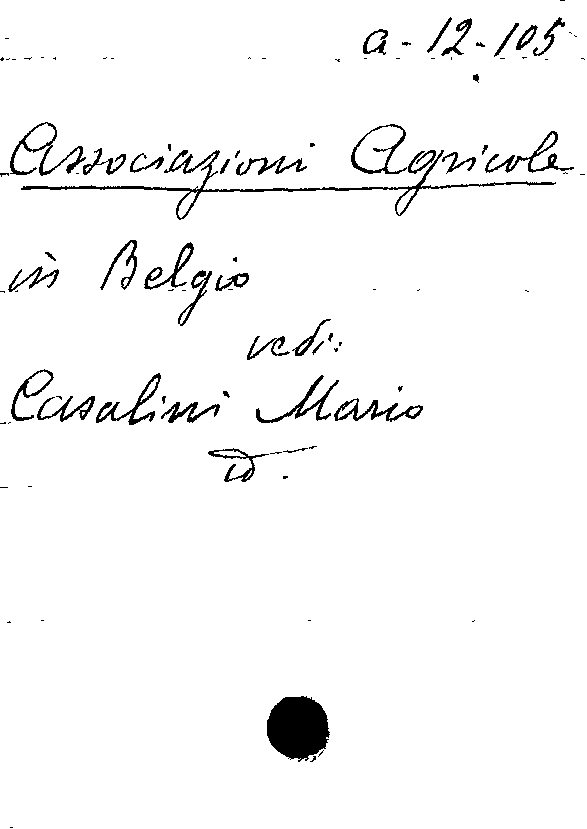 a-12-105
Associazioni Agricole
in Belgio
vedi:
Casalini Mario
id.